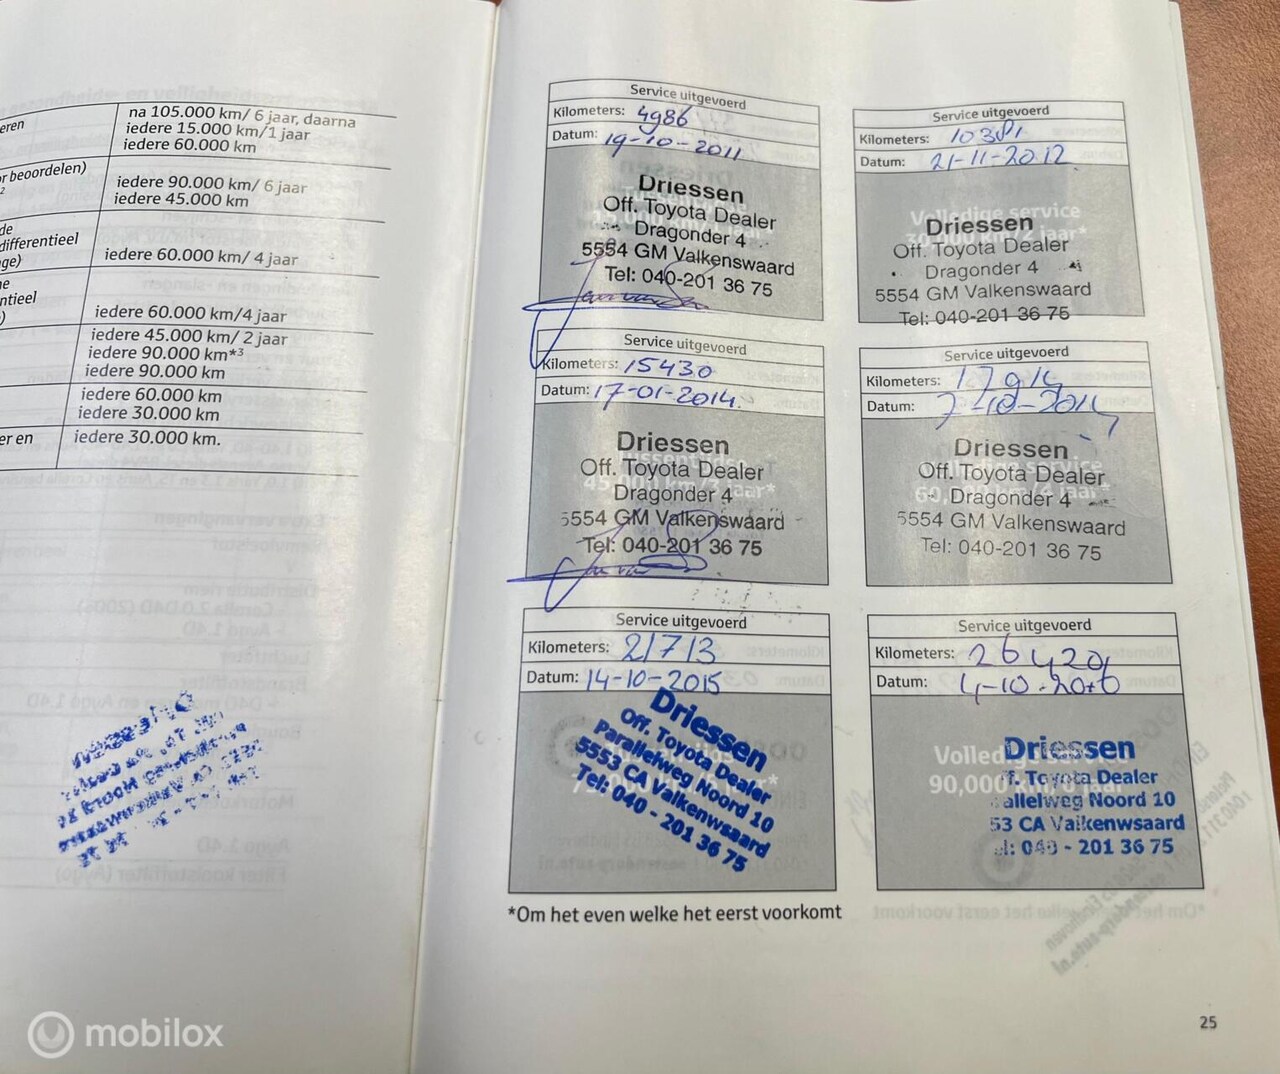 eren
na 105.000 km/ 6 jaar, daarna
iedere 15.000 km/1 jaar
iedere 60.000 km
r beoordelen)
2
iedere 90.000 km/ 6 jaar
iedere 45.000 km
de
differentieel
ge)
iedere 60.000 km/ 4 jaar
e
ntieel
)
iedere 60.000 km/4 jaar
iedere 45.000 km/ 2 jaar
iedere 90.000 km*3
iedere 90.000 km
iedere 60.000 km
iedere 30.000 km
er en
iedere 30.000 km.
Service uitgevoerd
Kilometers: 4986
Datum: 19-10-2011
Driessen
Off. Toyota Dealer
Dragonder 4
5554 GM Valkenswaard
Tel: 040-201 36 75
Service uitgevoerd
Kilometers: 10381
Datum: 21-11-2012
Volledige service
30,000 km/2 jaar*
Driessen
Off. Toyota Dealer
Dragonder 4
5554 GM Valkenswaard
Tel: 040-201 36 75
Service uitgevoerd
Kilometers: 15430
Datum: 17-01-2014.
45,000 km/3 jaar*
Driessen
Off. Toyota Dealer
Dragonder 4
5554 GM Valkenswaard
Tel: 040-201 36 75
Service uitgevoerd
Kilometers: 17914
Datum: 7-10-2014
service
60,000 km/4 jaar*
Driessen
Off. Toyota Dealer
Dragonder 4
5554 GM Valkenswaard
Tel: 040-201 36 75
Service uitgevoerd
Kilometers: 21713
Datum: 14-10-2015
Driessen
Off. Toyota Dealer
Parallelweg Noord 10
5553 CA Valkenwsaard
Tel: 040 - 201 36 75
Service uitgevoerd
Kilometers: 26420
Datum: 4-10-2016
Volledige service
90,000 km/6 jaar
Driessen
ff. Toyota Dealer
allelweg Noord 10
53 CA Valkenwsaard
el: 040 - 201 36 75
*Om het even welke het eerst voorkomt
25
mobilox